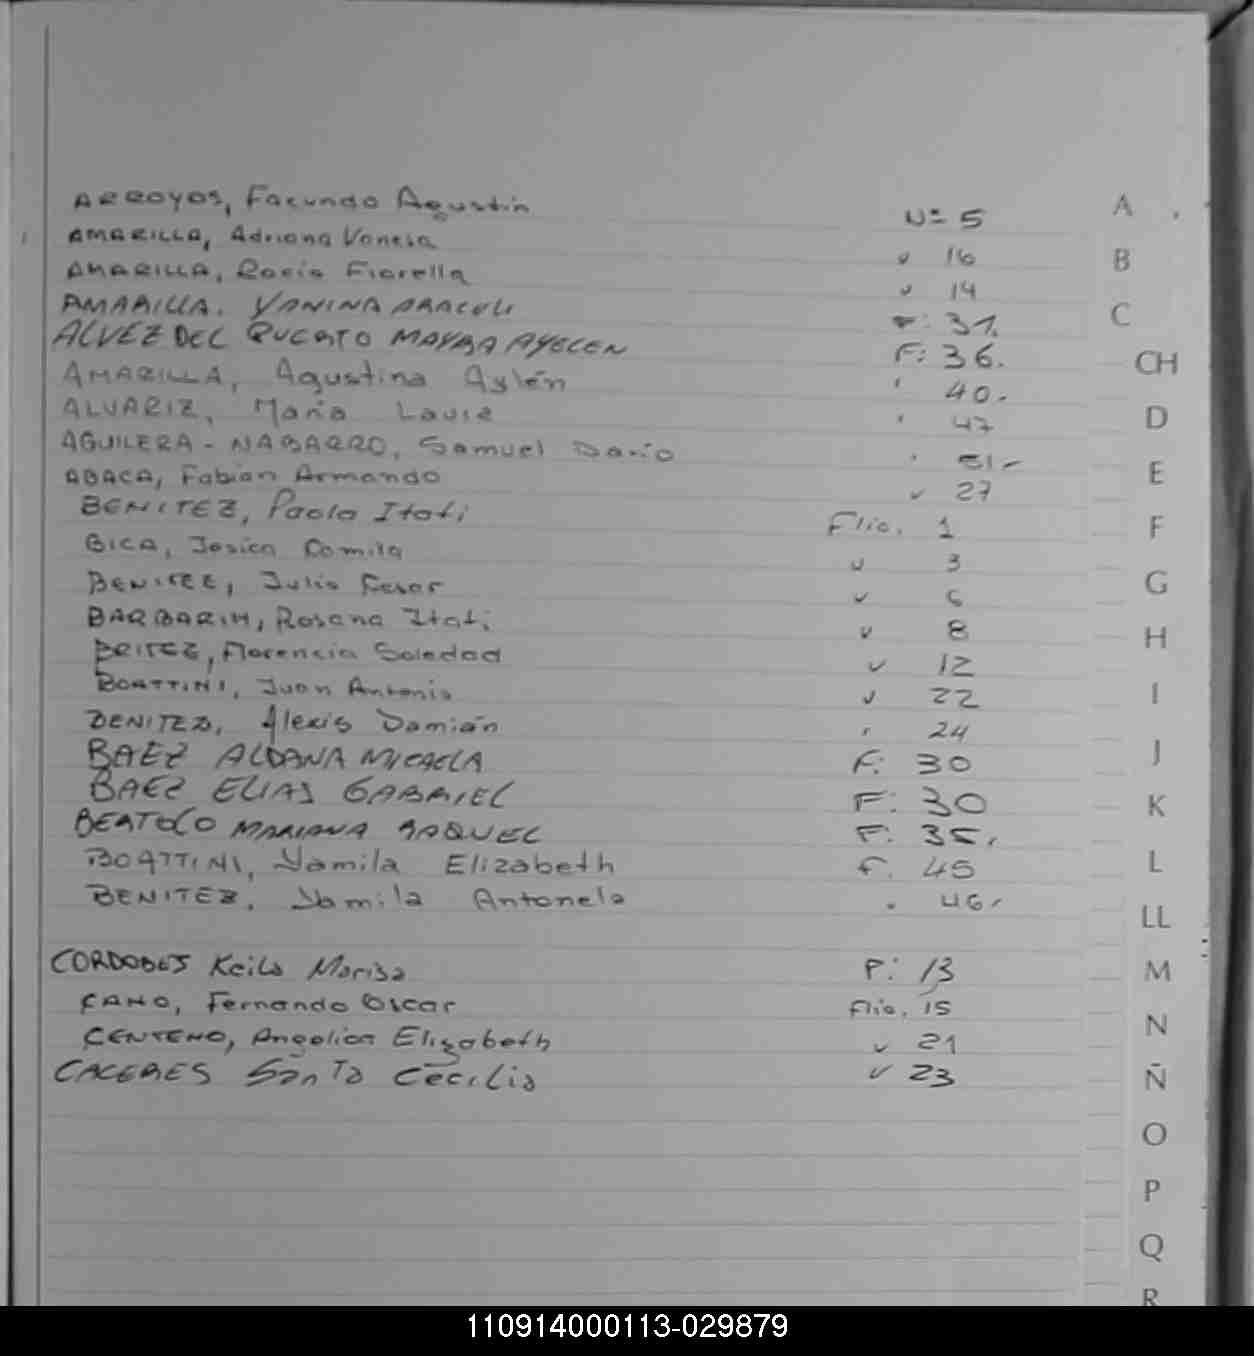 ARROYOS, Facundo Agustin Nº 5
AMARILLA, Adriana Vanesa " 16
AMARILLA, Rocio Fiorella " 14
AMARILLA. YANINA ARACELI F: 31.
ALVEZ DEL PUERTO MAYRA AYELEN F: 36.
AMARILLA, Agustina Aylén " 40.
ALVARIZ, Maria Laura " 47
AGUILERA - NABARRO, Samuel Dario " 51-
ABACA, Fabian Armando " 27
BENITEZ, Paola Itati Flio. 1
BICA, Jesica Camila " 3
BENITEZ, Julio Cesar " 6
BARBARIM, Rosana Itati " 8
BRITEZ, Florencia Soledad " 12
BOATTINI, Juan Antonio " 22
BENITEZ, Alexis Damián " 24
BAEZ ALDANA MICAELA F: 30
BAEZ ELIAS GABRIEL F: 30
BERTOLO MARIANA RAQUEL F: 35.
BOATTINI, Yamila Elizabeth F. 45
BENITEZ, Yamila Antonela " 46.
CORDOBES Keila Marisa P: 13
CANO, Fernando Oscar Flio. 15
CENTENO, Angelica Elizabeth " 21
CACERES Santa Cecilia " 23
A
B
C
CH
D
E
F
G
H
I
J
K
L
LL
M
N
Ñ
O
P
Q
R
110914000113-029879